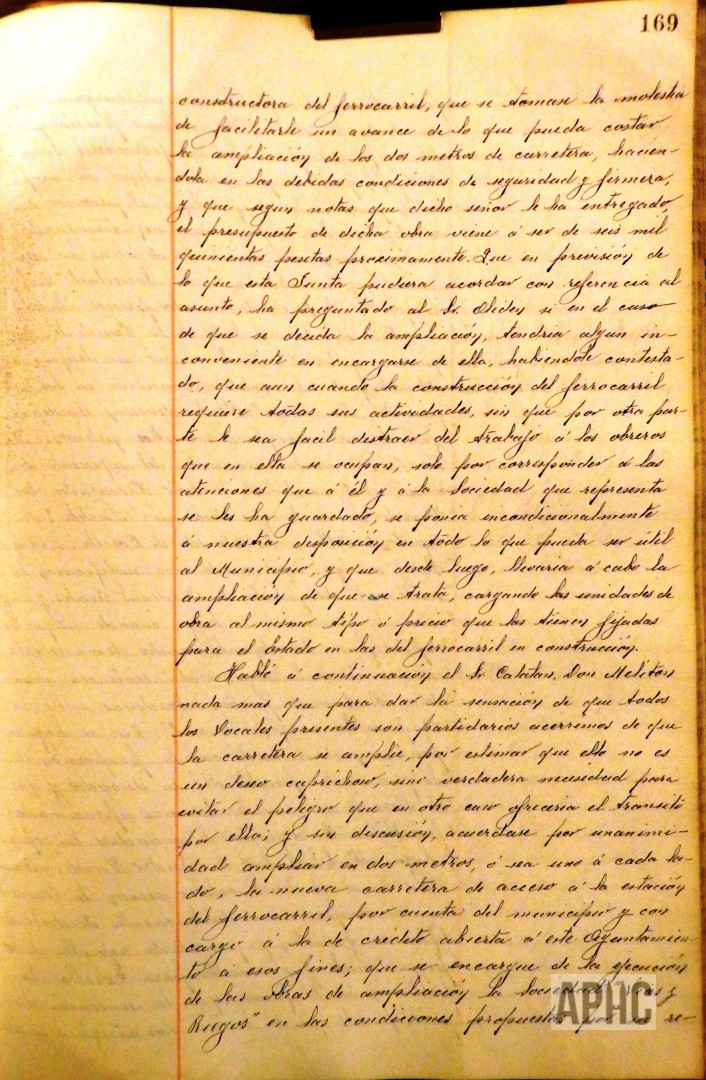 169
constructora del ferrocarril, que se tomase la molestia
de facilitarle un avance de lo que pueda costar
la ampliación de los dos metros de carretera, hacien-
dola en las debidas condiciones de seguridad y firmeza,
y que segun notas que dicho señor le ha entregado,
el presupuesto de dicha obra viene á ser de seis mil
quinientas pesetas proximamente. Que en previsión de
lo que esta Junta pudiera acordar con referencia al
asunto, ha preguntado al Sr. si en el caso
de que se decida la ampliación, tendria algun in-
conveniente en encargarse de ella, habiendole contesta-
do, que aun cuando la construcción del ferrocarril
requiere todas sus actividades, sin que por otra par-
te le sea facil distraer del trabajo á los obreros
que en ella se ocupan, solo por corresponder á las
atenciones que á él y á la Sociedad que representa
se les ha guardado, se ponia incondicionalmente
á nuestra disposición en todo lo que pueda ser útil
al Municipio, y que desde luego, llevaria á cabo la
ampliacion de que se trata, cargando las unidades de
obra al mismo tipo ó precio que las tienen fijadas
para el Estado en las del ferrocarril en construcción.
Habló á continuación el Sr. Catalan, Don Meliton
nada mas que para dar la sensación de que todos
los Vocales presentes son partidarios acerrimos de que
la carretera se amplie, por estimar que ello no es
un deseo caprichoso, sino verdadera necesidad para
evitar el peligro que en otro caso ofreceria el transito
por ella; y sin discusión, acuerdase por unanimi-
dad ampliar en dos metros, ó sea uno á cada la-
do, la nueva carretera de acceso á la estación
del ferrocarril, por cuenta del municipio y con
cargo á la de crédito abierta á este Ayuntamien-
to a esos fines; que se encargue de la ejecución
de las obras de ampliación la Sociedad y
Riegos" en las condiciones propuestas por su re-
APHC